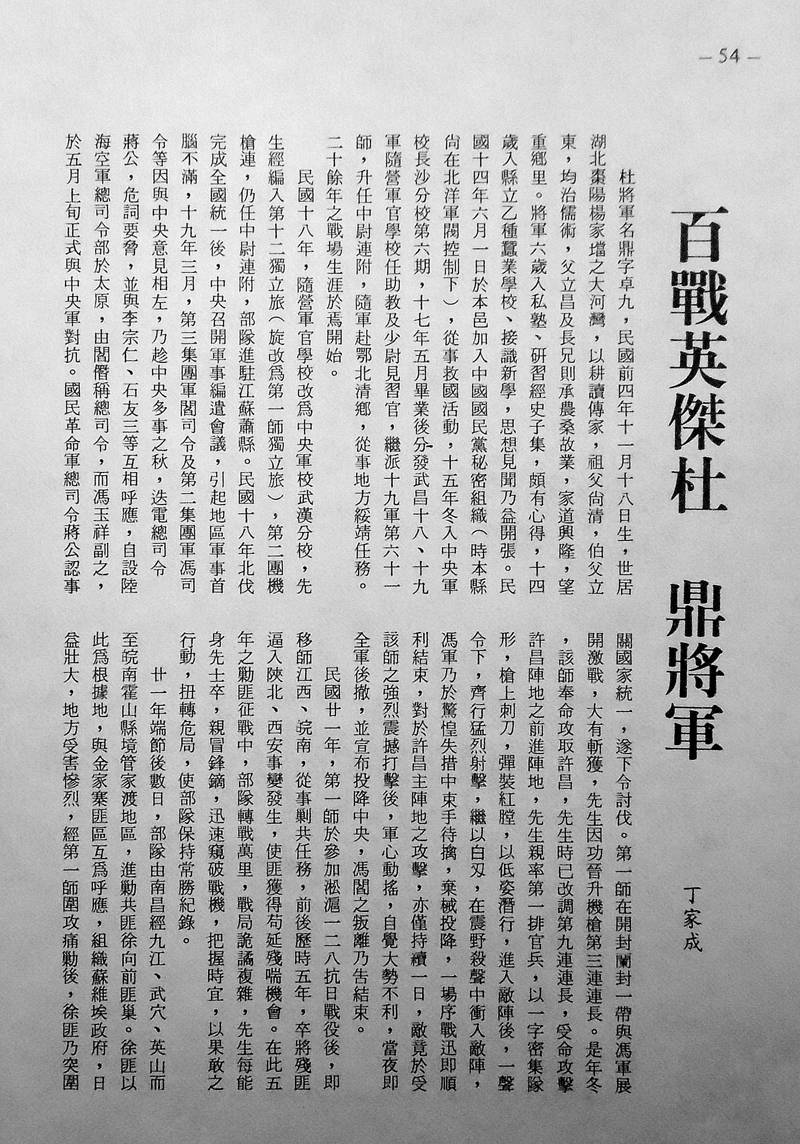 — 54 —
百戰英傑杜　鼎將軍
丁家成
杜將軍名鼎字卓九，民國前四年十一月十八日生，世居
湖北棗陽楊家壋之大河灣，以耕讀傳家，祖父尙清，伯父立
東，均治儒術，父立昌及長兄則承農桑故業，家道興隆，望
重鄉里。將軍六歲入私塾、硏習經史子集，頗有心得，十四
歲入縣立乙種蠶業學校、接識新學，思想見聞乃益開張。民
國十四年六月一日於本邑加入中國國民黨秘密組織（時本縣
尙在北洋軍閥控制下），從事救國活動，十五年冬入中央軍
校長沙分校第六期，十七年五月畢業後分發武昌十八、十九
軍隨營軍官學校任助教及少尉見習官，繼派十九軍第六十一
師，升任中尉連附，隨軍赴鄂北清鄉，從事地方綏靖任務。
二十餘年之戰場生涯於焉開始。
民國十八年，隨營軍官學校改爲中央軍校武漢分校，先
生經編入第十二獨立旅（旋改爲第一師獨立旅），第二團機
槍連，仍任中尉連附，部隊進駐江蘇蕭縣。民國十八年北伐
完成全國統一後，中央召開軍事編遣會議，引起地區軍事首
腦不滿，十九年三月，第三集團軍閻司令及第二集團軍馮司
令等因與中央意見相左，乃趁中央多事之秋，迭電總司令
蔣公，危詞要脅，並與李宗仁、石友三等互相呼應，自設陸
海空軍總司令部於太原，由閻僭稱總司令，而馮玉祥副之，
於五月上旬正式與中央軍對抗。國民革命軍總司令蔣公認事
關國家統一，遂下令討伐。第一師在開封蘭封一帶與馮軍展
開激戰，大有斬獲，先生因功晉升機槍第三連連長。是年冬
，該師奉命攻取許昌，先生時已改調第九連連長，受命攻擊
許昌陣地之前進陣地，先生親率第一排官兵，以一字密集隊
形，槍上刺刀，彈裝紅膛，以低姿潛行，進入敵陣後，一聲
令下，齊行猛烈射擊，繼以白刃，在震野殺聲中衝入敵陣，
馮軍乃於驚惶失措中束手待擒，棄械投降，一場序戰迅即順
利結束，對於許昌主陣地之攻擊，亦僅持續一日，敵竟於受
該師之強烈震撼打擊後，軍心動搖，自覺大勢不利，當夜即
全軍後撤，並宣布投降中央，馮閻之叛離乃告結束。
民國廿一年，第一師於參加淞滬一二八抗日戰役後，即
移師江西、皖南，從事剿共任務，前後歷時五年，卒將殘匪
逼入陝北、西安事變發生，使匪獲得苟延殘喘機會。在此五
年之勦匪征戰中，部隊轉戰萬里，戰局詭譎複雜，先生每能
身先士卒，親冒鋒鏑，迅速窺破戰機，把握時宜，以果敢之
行動，扭轉危局，使部隊保持常勝紀錄。
廿一年端節後數日，部隊由南昌經九江、武穴、英山而
至皖南霍山縣境管家渡地區，進勦共匪徐向前匪巢。徐匪以
此爲根據地，與金家寨匪區互爲呼應，組織蘇維埃政府，日
益壯大，地方受害慘烈，經第一師圍攻痛勦後，徐匪乃突圍